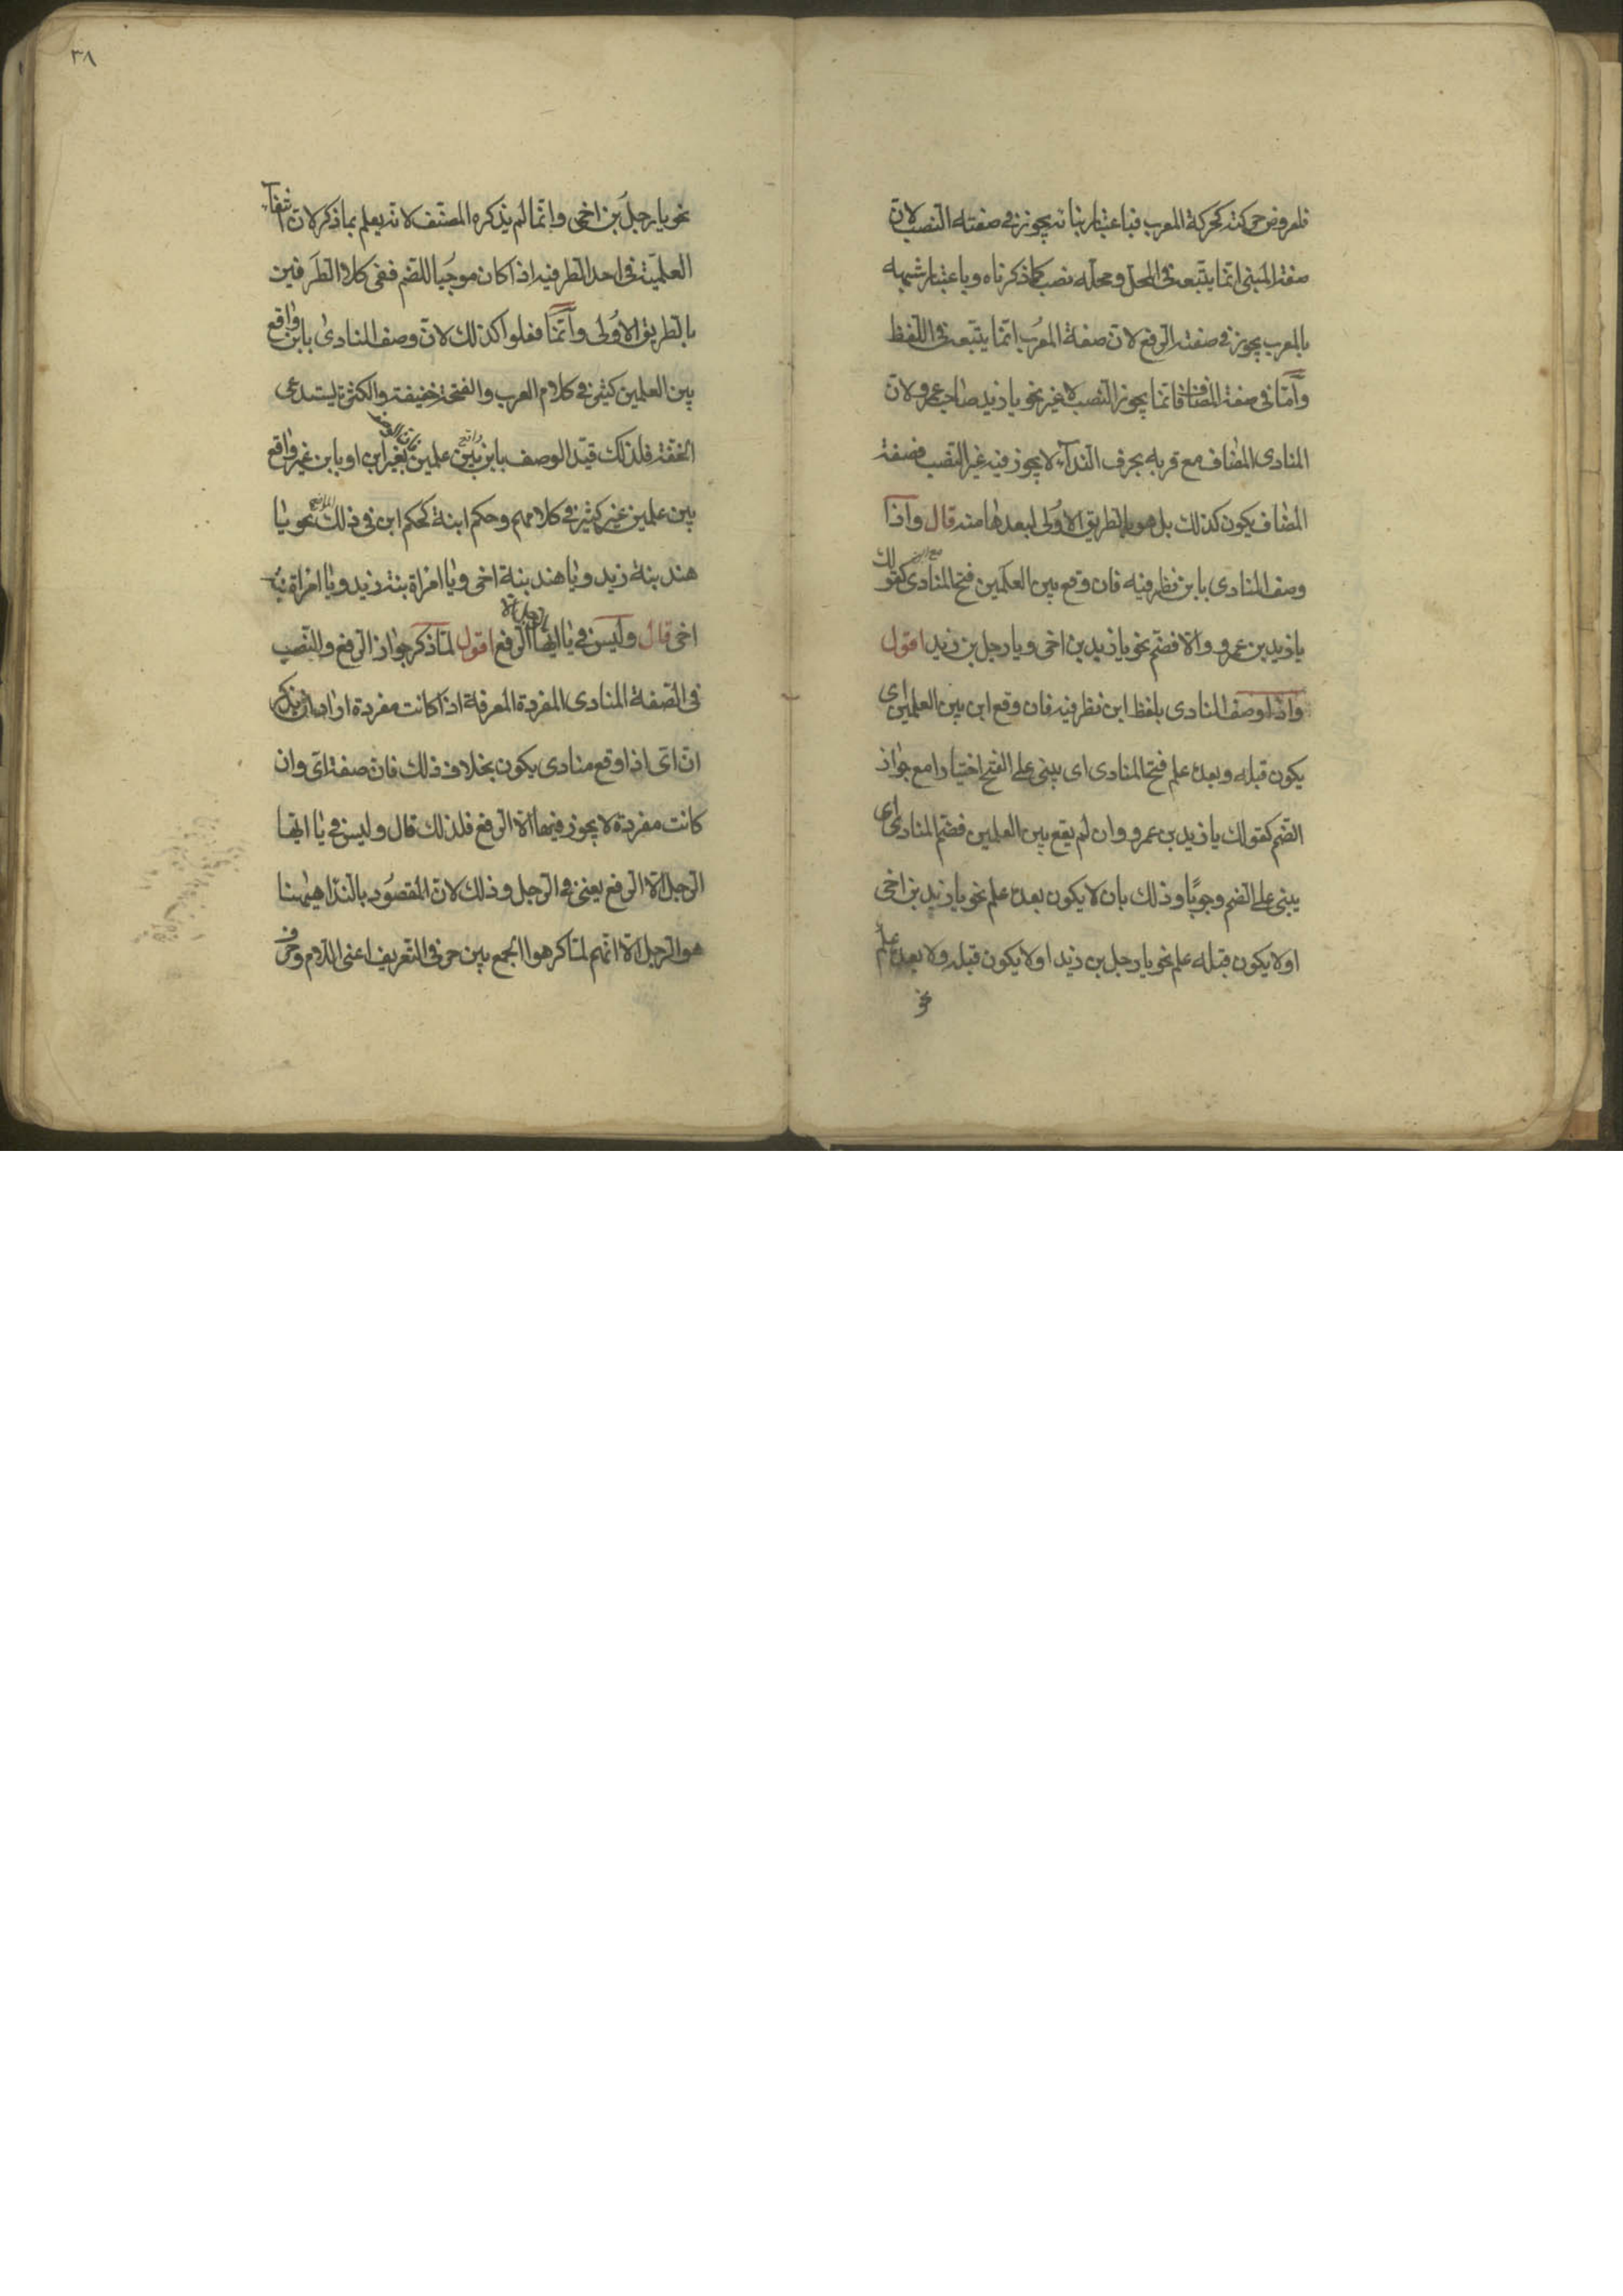 فلعروض حركته كحركة المعرب فباعتبار بنائه يجوز في صفته النصب لان
صفة المبنى انما يتبعه في المحل ومحله نصب كما ذكرناه وباعتبار شبهه
بالمعرب يجوز في صفته الرفع لان صفة المعرب انما يتبعه في اللفظ
وامّا في صفة المضاف فانما يجوز النصب لا غير نحو يا زيد صاحب عمرو لان
المنادى المضاف مع قربه بحرف النداء لا يجوز فيه غير النصب فصفة
المضاف يكون كذلك بل هو بالطريق الاولى لبعدها منه قال واذا
وصف المنادى بابن نظر فيه فان وقع بين العلمين فتح المنادى كقولك
يا زيد بن عمرو والا فضم نحو يا زيد بن اخى ويا رجل بن زيد اقول
واذا وصف المنادى بلفظ ابن نظر فيه فان وقع ابن بين العلمين اى
يكون قبله وبعده علم فتح المنادى اى يبنى على الفتح اختيارا مع جواز
الضم كقولك يا زيد بن عمرو وان لم يقع بين العلمين فضم المنادى اى
يبنى على الضم وجوبا وذلك بان لا يكون بعده علم نحو يا زيد بن اخى
اولا يكون قبله علم نحو يا رجل بن زيد اولا يكون قبله ولا بعده علم
نحو
٣٨
نحو يا رجل بن اخى وانما لم يذكره المصنف لانه يعلم بما ذكر لان انتفاء
العلمية في احد الطرفين اذا كان موجبا للضم ففى كلا الطرفين
بالطريق الاولى وانما فعلوا كذلك لان وصف المنادى بابن واقع
بين العلمين كثير في كلام العرب والفتحة خفيفة والكثرة يستدعى
الخفة فلذلك قيد الوصف بابن بين علمين بغير ابن او بابن غير واقع
بين علمين غير كثير في كلامهم وحكم ابنة كحكم ابن في ذلك نحو يا
هند بنة زيد ويا هند بنة اخى ويا امراة بنة زيد ويا امراة بنة
اخى قال وليس في يا ايها الرجل الا الرفع اقول لما ذكر جواز الرفع والنصب
في الصفة المنادى المفردة المعرفة اذا كانت مفردة اراد ان يذكر
ان اى اذا وقع منادى يكون بخلاف ذلك فان صفة اى وان
كانت مفردة لا يجوز فيها الا الرفع فلذلك قال وليس في يا ايها
الرجل الا الرفع يعنى في الرجل وذلك لان المقصود بالندا هيهنا
هو الرجل الا انهم لما كرهوا الجمع بين حرفى التعريف اعنى اللام وحرف